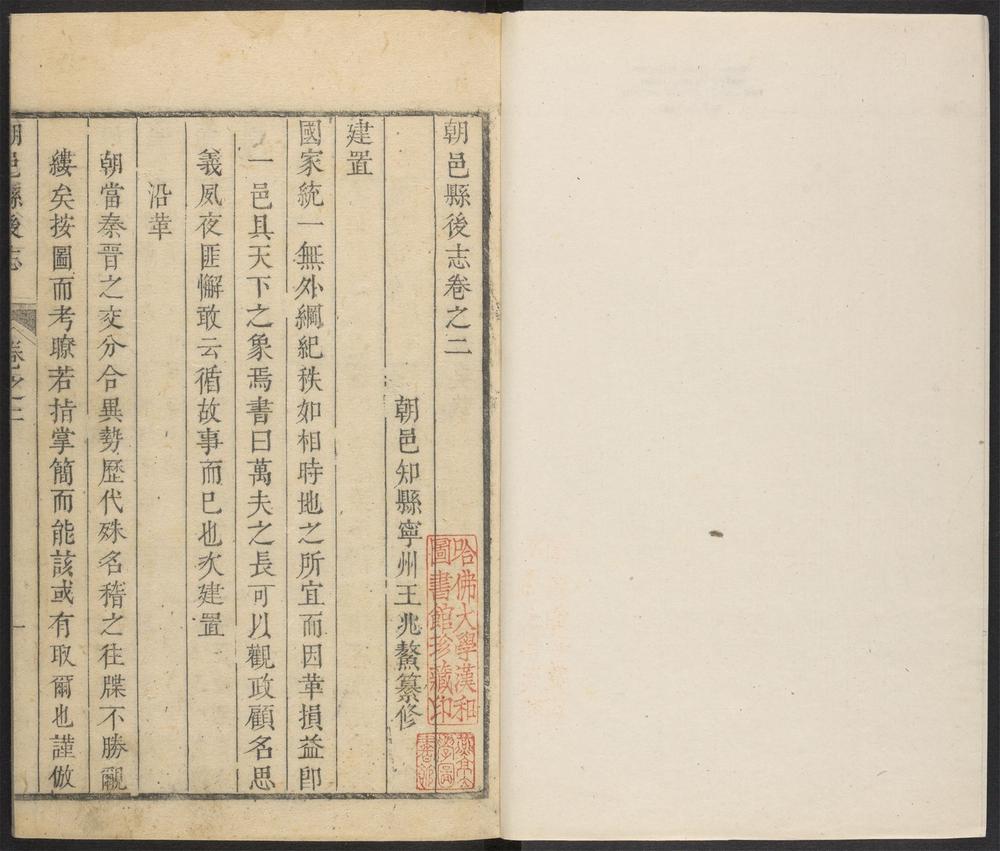 朝邑縣後志卷之二
朝邑知縣寧州王兆鰲纂修
哈佛大學漢和
圖書館珍藏印
建置
國家統一無外綱紀秩如相時地之所宜而因革損益卽
一邑具天下之象焉書曰萬夫之長可以觀政顧名思
義夙夜匪懈敢云循故事而已也次建置
沿革
朝當秦晉之交分合異勢歷代殊名稽之往牒不勝覼
縷矣按圖而考瞭若指掌簡而能該或有取爾也謹倣
朝邑縣後志 卷之二 一